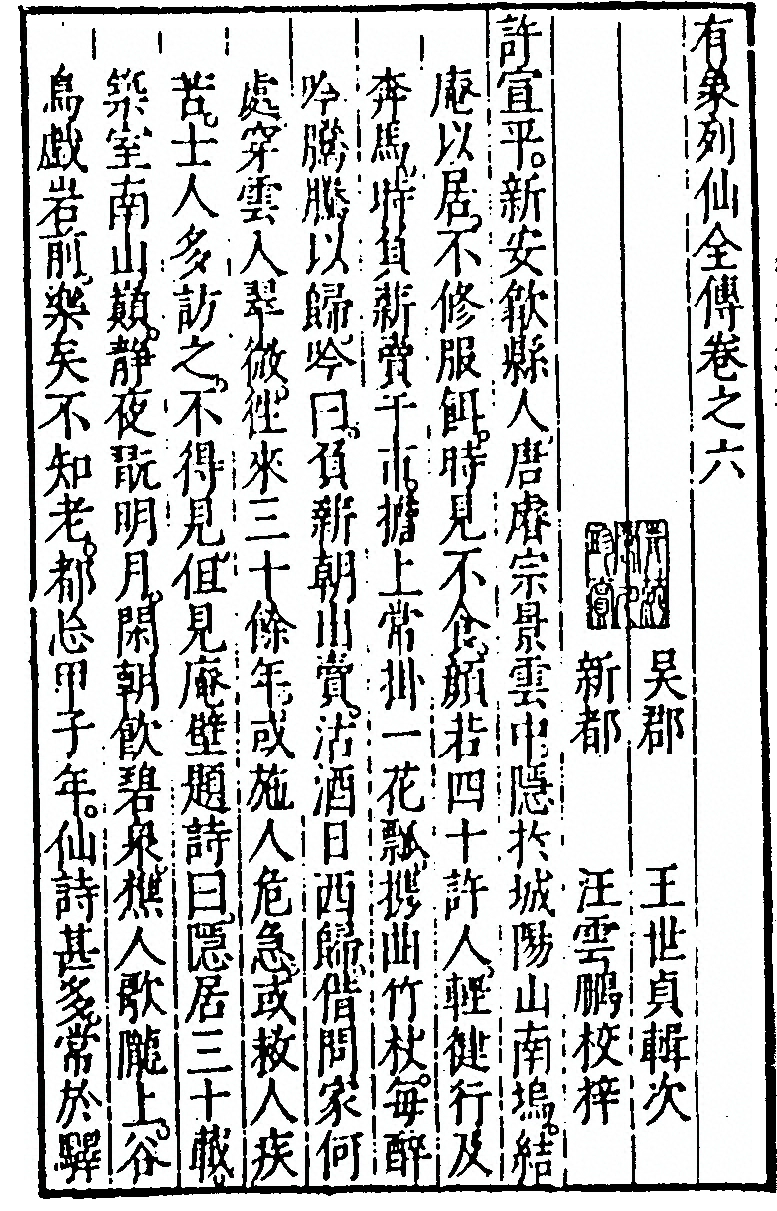 有象列仙全傳卷之六
吳郡 王世貞輯次
新都 汪雲鵬校梓
許宣平。新安歙縣人。唐睿宗景雲中隱於城陽山南塢。結
庵以居。不修服餌。時見不食。顏若四十許人。輕健行及
奔馬。時負薪賣于市。擔上常掛一花瓢。攜曲竹杖。每醉
吟騰騰以歸。吟曰。負薪朝出賣。沽酒日西歸。借問家何
處。穿雲入翠微。徃來三十餘年。或施人危急。或救人疾
苦。士人多訪之。不得見。但見庵壁題詩曰。隱居三十載。
築室南山巔。靜夜翫明月。閑朝飲碧泉。樵人歌隴上。谷
鳥戯岩前。樂矣不知老。都忘甲子年。仙詩甚多。常於驛